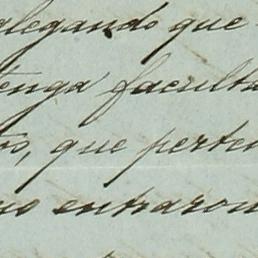 alegando que
tenga faculta
os, que perten
no entraron